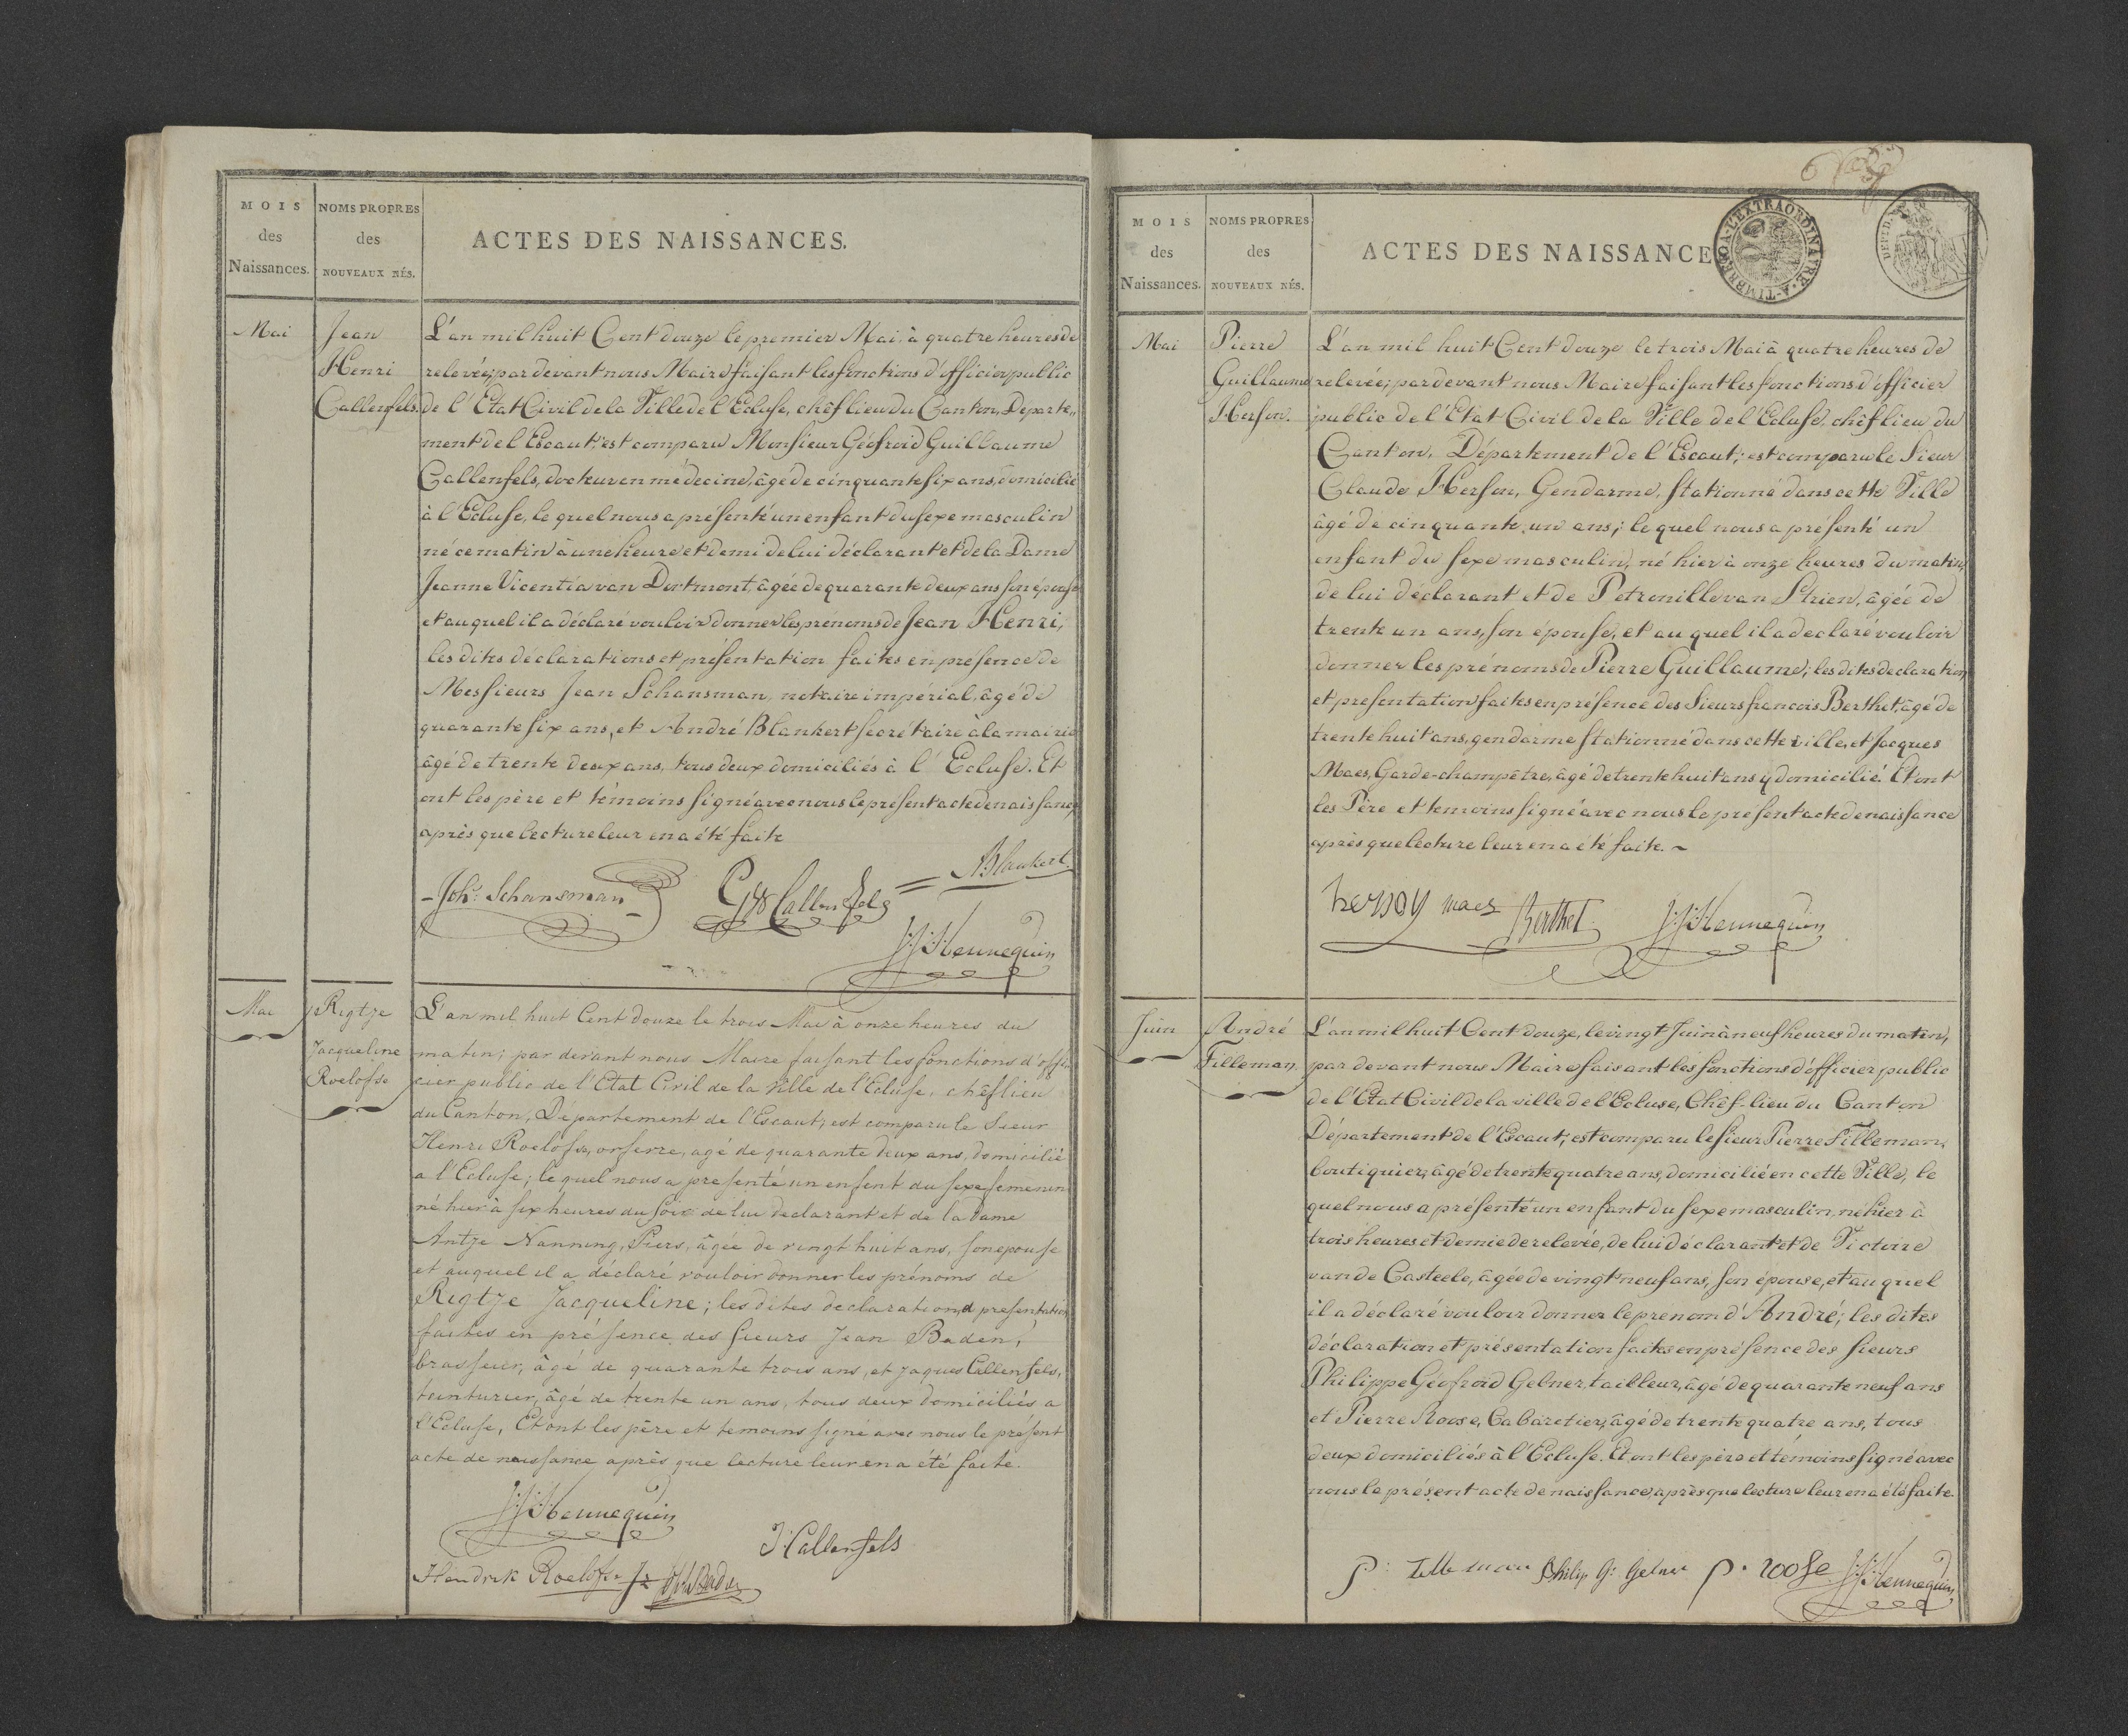 MOIS
des
Naissances.
NOMS PROPRES
des
NOUVEAUX NÉS.
ACTES DES NAISSANCES.
Mai
Jean
Henri
Callenfels.
L'an mil huit Cent douze le premier Mai, à quatre heures de
relevée; par devant nous Maire faisant les fonctions d'officier public
de l'Etat Civil de la Ville de l'Ecluse, chêf lieu du Canton, Departe„
ment de l'Escaut; est comparu Monsieur Géofroid Guillaume
Callenfels, docteur en médecine, âgé de cinquante six ans, domicilié
à l'Ecluse, le quel nous a présenté un enfant du sexe masculin
né ce matin à une heure et demi de lui déclarant et de la Dame
Jeanne Vicentia van Dortmont, âgée de quarante deux ans son épouse
et au quel il a déclaré vouloir donner les prénoms de Jean Henri,
les dites déclarations et présentation faites en présence de
Messieurs Jean Schansman, notaire impérial, âgé de
quarante six ans, et André Blankert secrétaire à la mairie
âgé de trente deux ans, tous deux domiciliés à l'Ecluse. Et
ont les père et témoins signé avec nous le présent acte de naissance,
après que lecture leur en a été faite
Joh: Schansman
GW Callenfels
ABlankert.
J:J:Hennequin
Mai
Rigtje
Jacqueline
Roelofse
L'an mil huit Cent douze le trois Mai à onze heures du
matin; par devant nous Maire faisant les fonctions d'offi-
cier public de l'Etat Civil de la Ville de l'Ecluse, chêf lieu
du Canton, Département de l'Escaut, est comparu le Sieur
Henri Roelofse, orfevre, agé de quarante deux ans, domicilié
a l'Ecluse; le quel nous a presenté un enfent du sexe femenin
né hier à six heures du soir de lui declarant et de la Dame
Antje Nanning Piers, âgée de vingt huit ans, son epouse
et auquel il a déclaré vouloir donner les prénoms de
Rigtje Jacqueline; les dites declaration et presentation
faites en présence des sieurs Jean Baden,
brasseur, âgé de quarante trois ans, et Jaques Callenfels,
teinturier, âgé de trente un ans, tous deux domiciliés a
l'Ecluse, Et ont les père et temoins signé avec nous le présent
acte de naissance après que lecture leur en a été faite.
J:J:Hennequin
J. Callenfels
Hendrik Roelofse
MOIS
des
Naissances.
NOMS PROPRES
des
NOUVEAUX NÉS.
ACTES DES NAISSANCE
A-TIMBRER-A-L'EXTRAORDINAIRE
Mai
Pierre
Guillaume
Herson.
L'an mil huit Cent douze le trois Mai à quatre heures de
relevée; par devant nous Maire faisant les fonctions d'officier
public de l'Etat Civil de la Ville de l'Ecluse, chêf lieu du
Canton, Département de l'Escaut; est comparu le Sieur
Claude Herson, Gendarme, stationné dans cette Ville
âgé de cinquante un ans; le quel nous a présenté un
enfant du sexe masculin, né hier à onze heures du matin,
de lui déclarant et de Petronille van Strien, âgée de
trente un ans, son épouse, et au quel il a declaré vouloir
donner les prénoms de Pierre Guillaume; les dites declaration
et presentation faites en présence des Sieurs francois Berthet, âgé de
trente huit ans, gendarme stationné dans cette ville, et Jacques
Maes, Garde-champêtre, âgé de trente huit ans y domicilié. Et ont
les Père et temoins signé avec nous le présent acte de naissance
après que lecture leur en a été faite. ~
hersoy
maes
Berthet
J:J:Hennequin
Juin
André
Tilleman.
L'an mil huit Cent douze, le vingt Juin à neuf heures du matin,
par devant nous Maire faisant les fonctions d'officier public
de l'Etat Civil de la ville de l'Ecluse, Chêf-lieu du Canton
Département de l'Escaut, est comparu le sieur Pierre Tilleman,
boutiquier, âgé de trente quatre ans, domicilié en cette Ville, le
quel nous a présenté un enfant du sexe masculin, né hier à
trois heures et demie de relevée, de lui déclarant et de Victoire
van de Casteele, âgée de vingt neuf ans, son épouse, et au quel
il a déclaré vouloir donner le prenom d'André; les dites
déclaration et présentation faites en présence des sieurs
Philippe Géofroid Gelner, tailleur, âgé de quarante neuf ans
et Pierre Roose, Cabaretier, âgé de trente quatre ans, tous
deux domiciliés à l'Ecluse. Et ont les père et témoins signé avec
nous le présent acte de naissance, après que lecture leur en a été faite.
P: Tilleman
Philip G: Gelner
P. roose
J:J:Hennequin